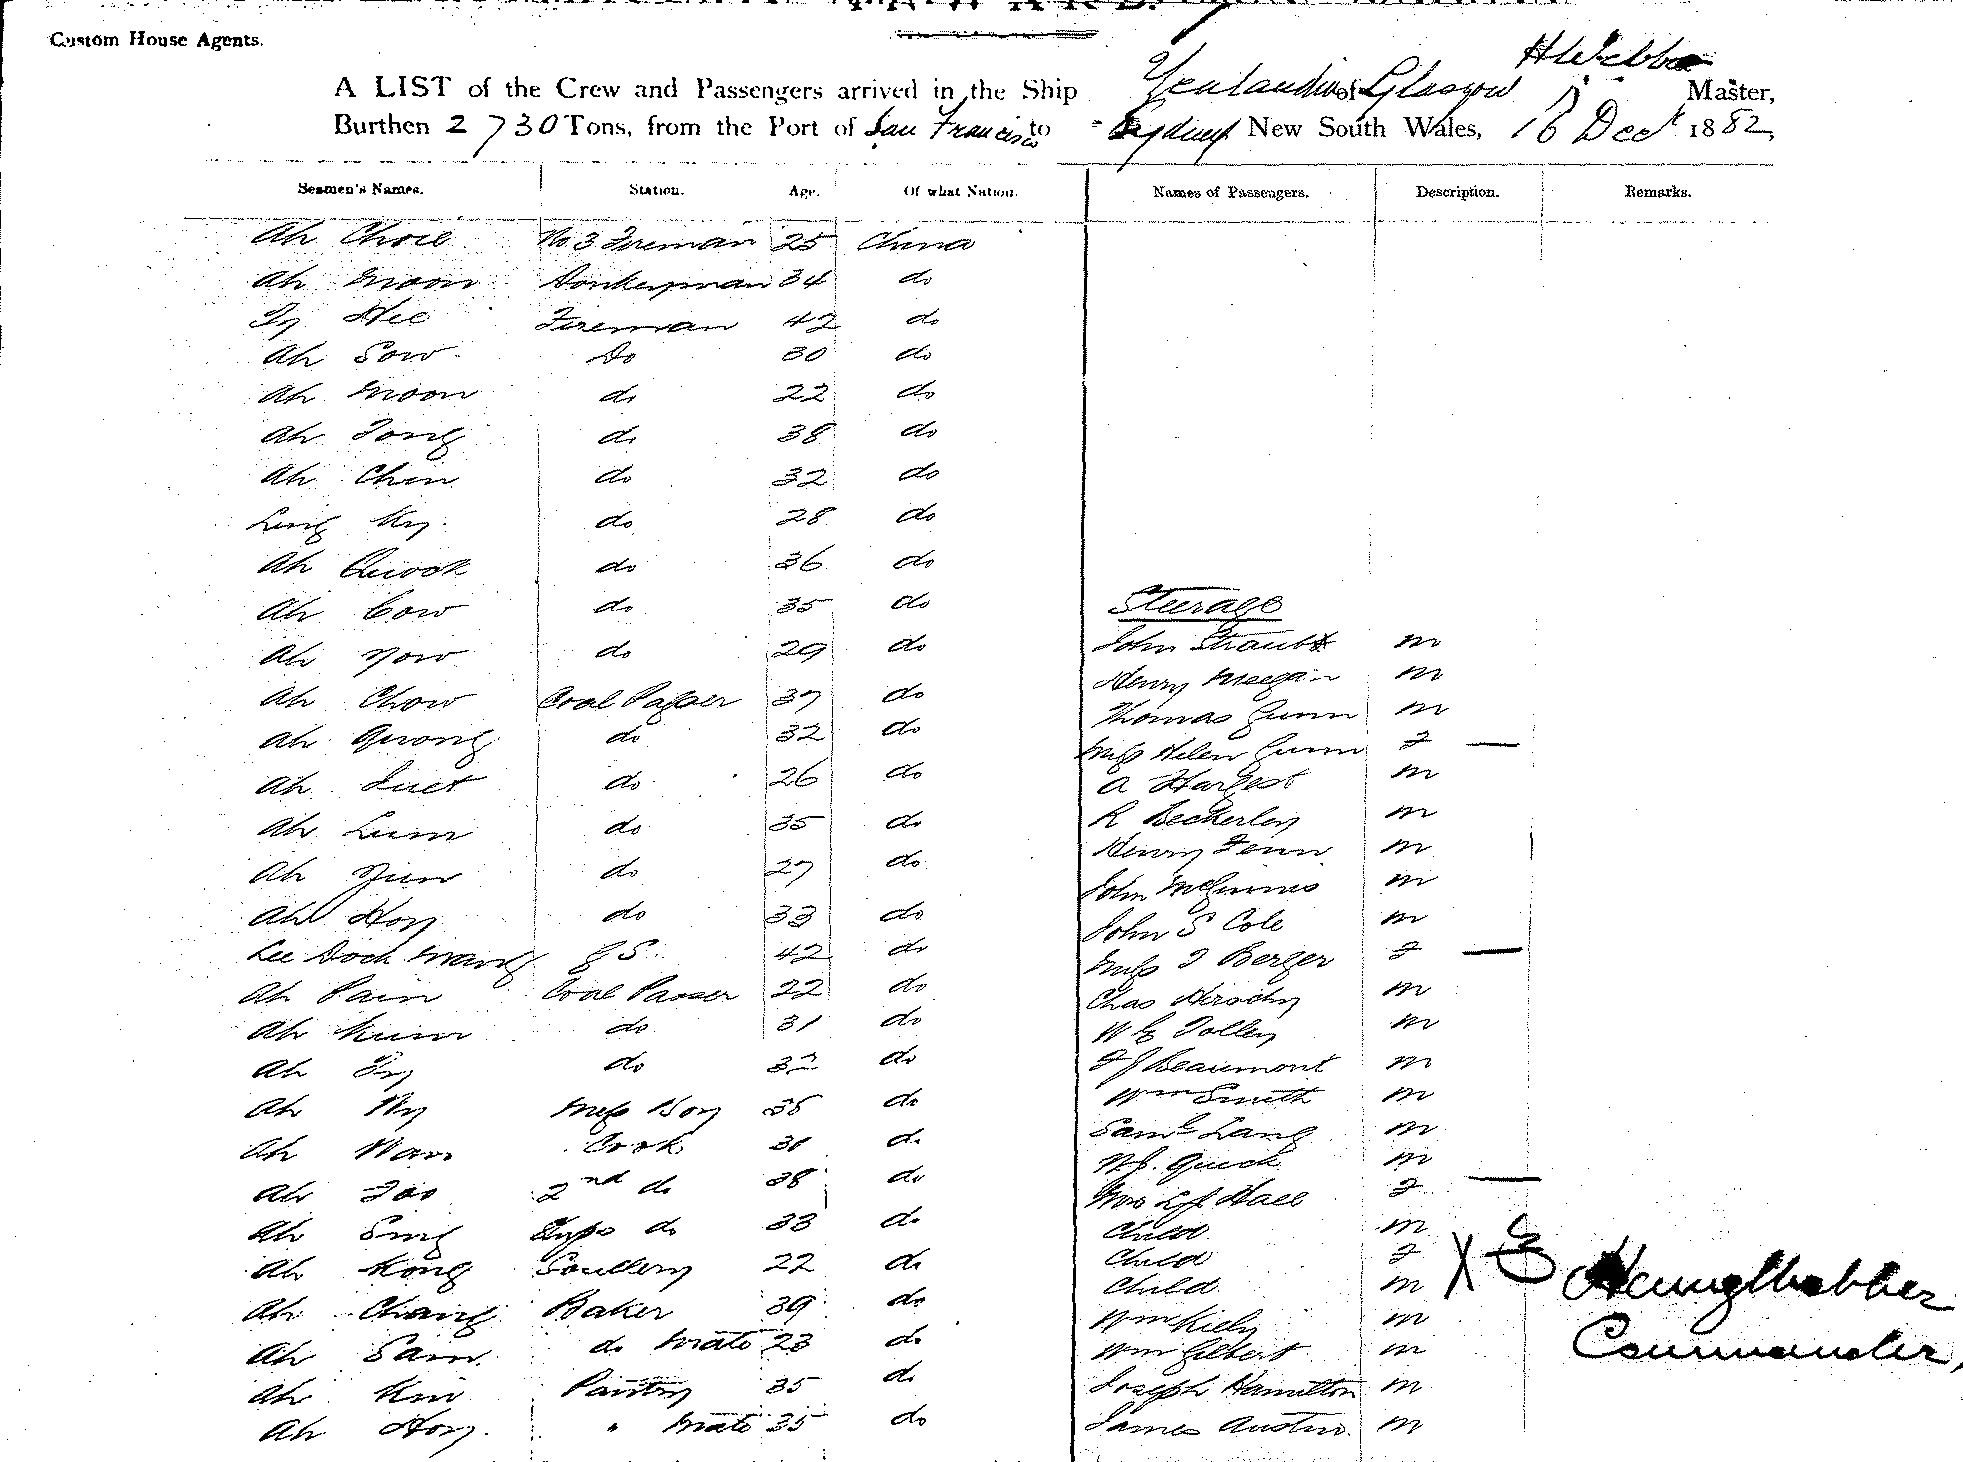 Custom House Agents.
H Webber
A LIST of the Crew and Passengers arrived in the Ship Zealandia of Glasgow Master,
Burthen 2730 Tons, from the Port of San Francisco to Sydney New South Wales, 16 Decr 1882
Seamen's Names. Station. Age. Of what Nation. Names of Passengers. Description. Remarks.
Ah Choie No 3 Fireman 25 China
Ah Moon Donkeyman 34 do
Hee Fireman 42 do
Ah Sow Do 30 do
Ah Moon do 22 do
Ah Tong do 38 do
Ah Chin do 32 do
Ling Ky do 28 do
Ah Quock do 36 do
Ah Cow do 35 do
Steerage
Ah Yow do 29 do John m
Ah Chow Coal Passer 37 do Henry Meegan m
Ah Quong do 32 do Thomas Gunn m
Miss Helen Gunn f —
Ah do 26 do A Hargest m
Ah Lum do 35 do R Beckerley m
Ah Yun do 27 do Henry Fenn m
John McGinnis m
Ah Hoy do 33 do John S Cole m
Lee Dock Wang 42 do Miss I Berger f —
Ah Pain Coal Passer 22 do Chas m
Ah Kum do 31 do Tolley m
Ah do 32 do Beaumont m
Ah Mess Boy 35 do Wm Smith m
Ah Wan Cook do Saml Lang m
Quick m
Ah 2nd do 38 do Mrs Hall f —
Ah Sing do 33 do Child m
Child f
Ah Kong Scullery 22 do Child m X
Ah Chang Baker 39 do Wm Kiely m
Ah Sam do Mate 23 do Wm Gilbert m
Commander,
Ah Kin Pantry 35 do Joseph Hamilton m
Ah Hoy " Mate 35 do James Austin m